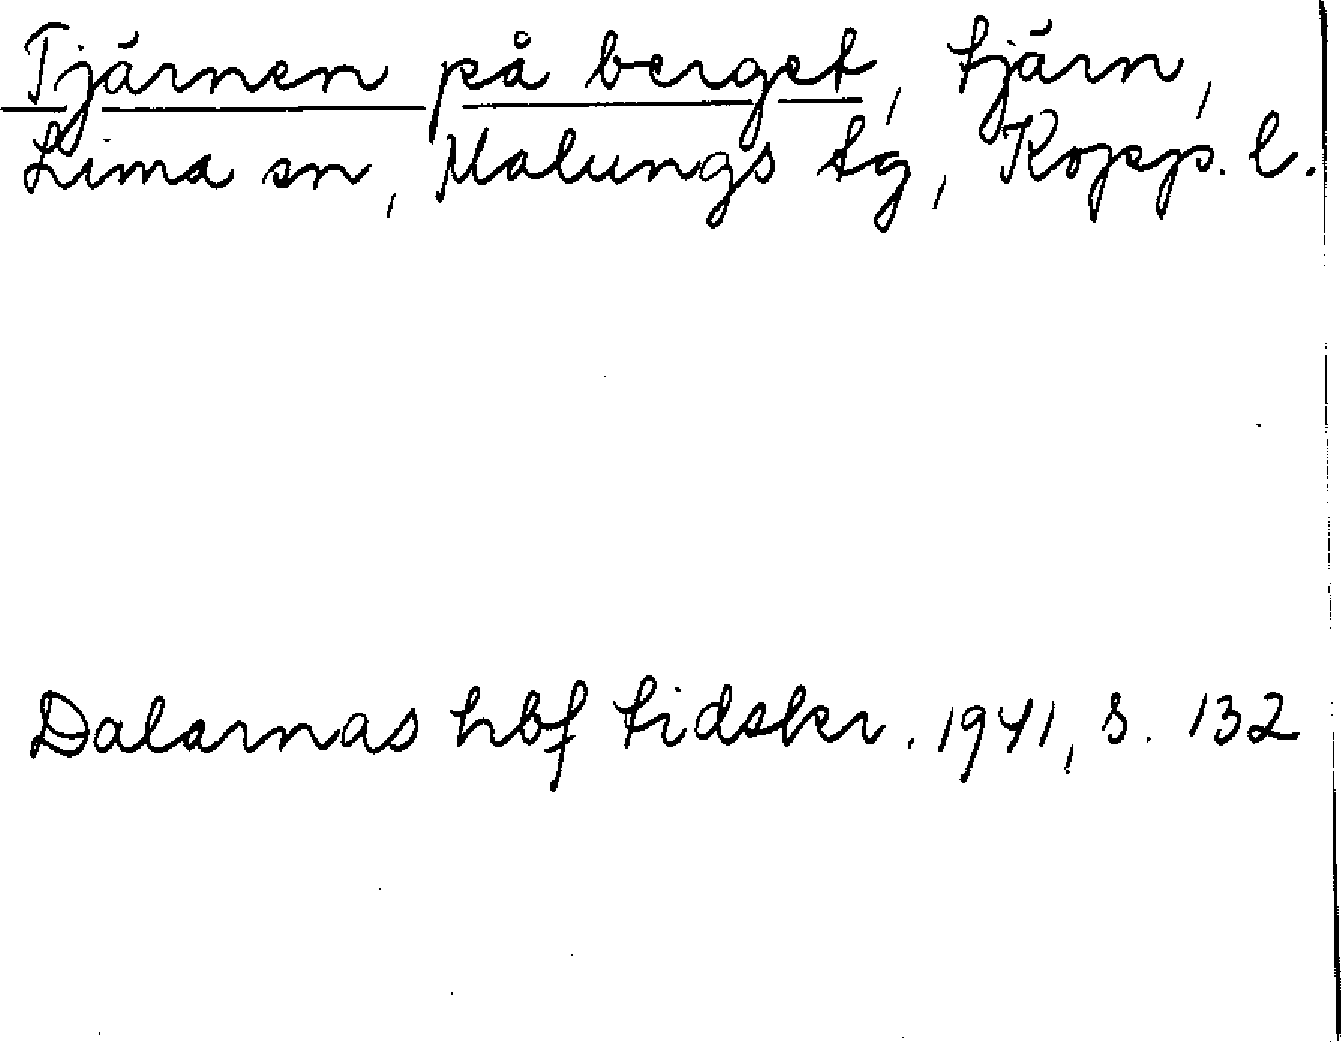 Tjärnen på berget, tjärn,
Lima sn, Malungs tg, Kopp. l.
Dalarnas hbf tidskr. 1941, s. 132